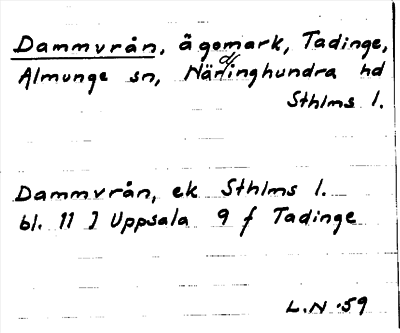 Dammvrån, ägomark, Tadinge,
Almunge sn, Närdinghundra hd
Sthlms l.
Dammvrån, ek Sthlms l.
bl. 11 J Uppsala 9 f Tadinge
L.N. 59